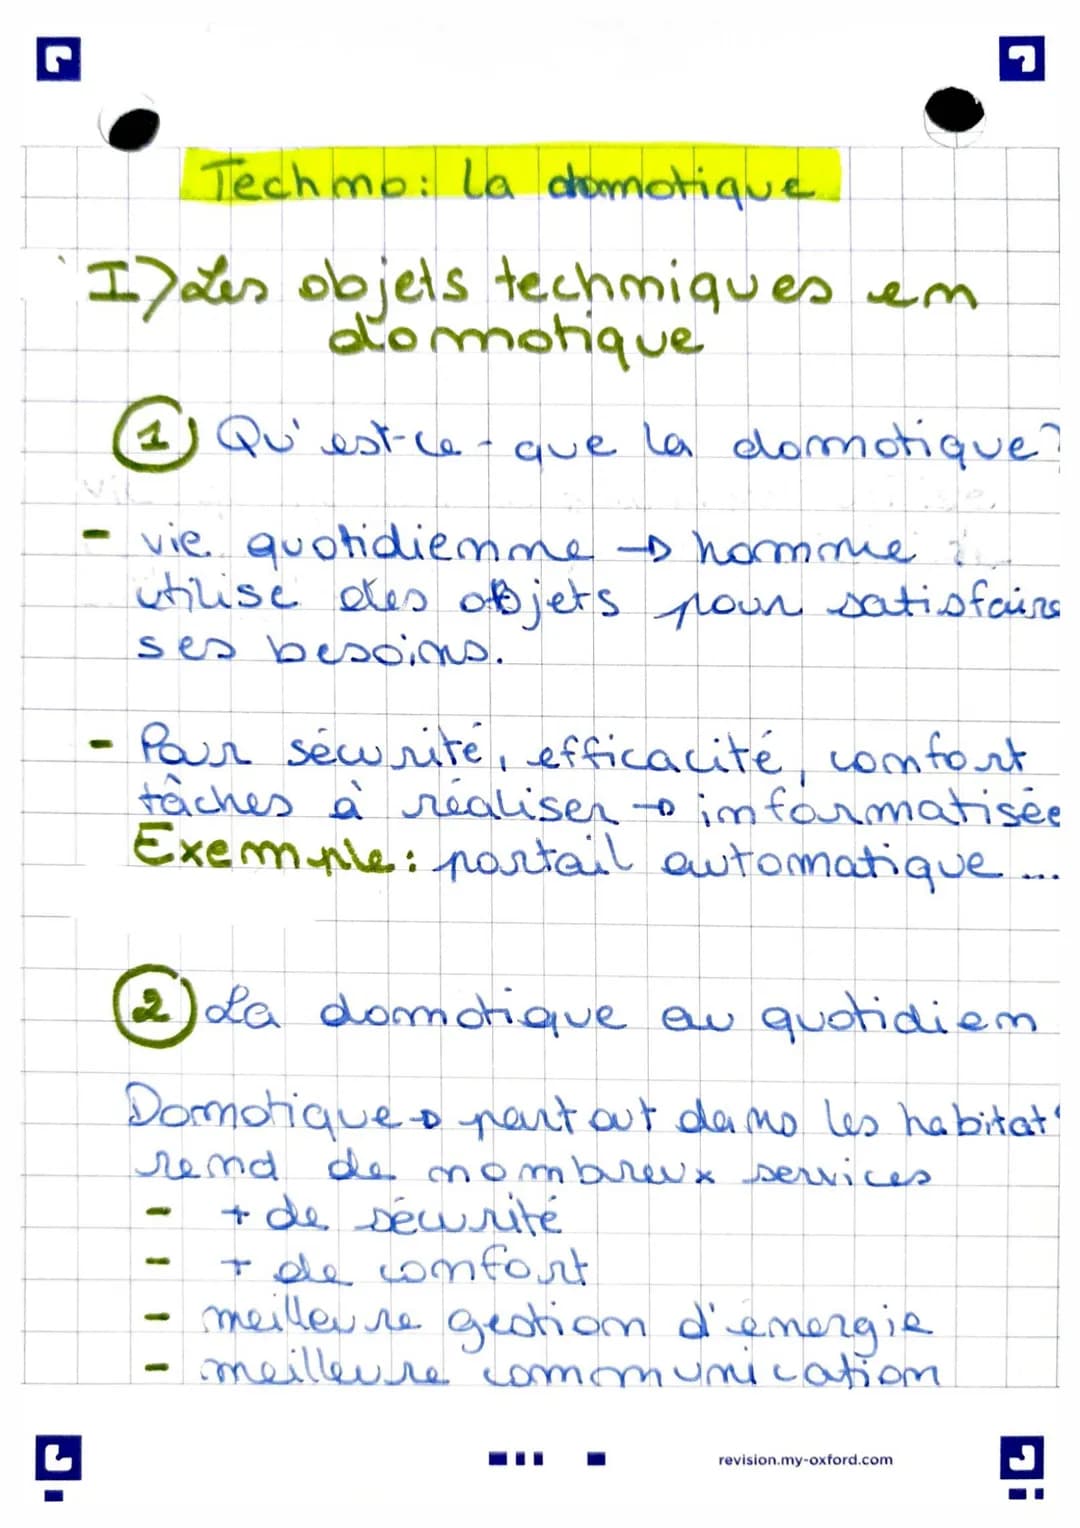 Techno: la domotique
I) Les objets techniques en
domotique
1) Qu'est-ce-que la domotique?
- vie quotidienne → homme
utilise des objets pour satisfaire
ses besoins.
- Pour sécurité, efficacité, confort
tâches à réaliser → informatisée
Exemple: portail automatique ...
2) La domotique au quotidien
Domotique → partout dans les habitat
rend de nombreux services
- + de sécurité
- + de confort
- meilleure gestion d'énergie
- meilleure communication
revision.my-oxford.com